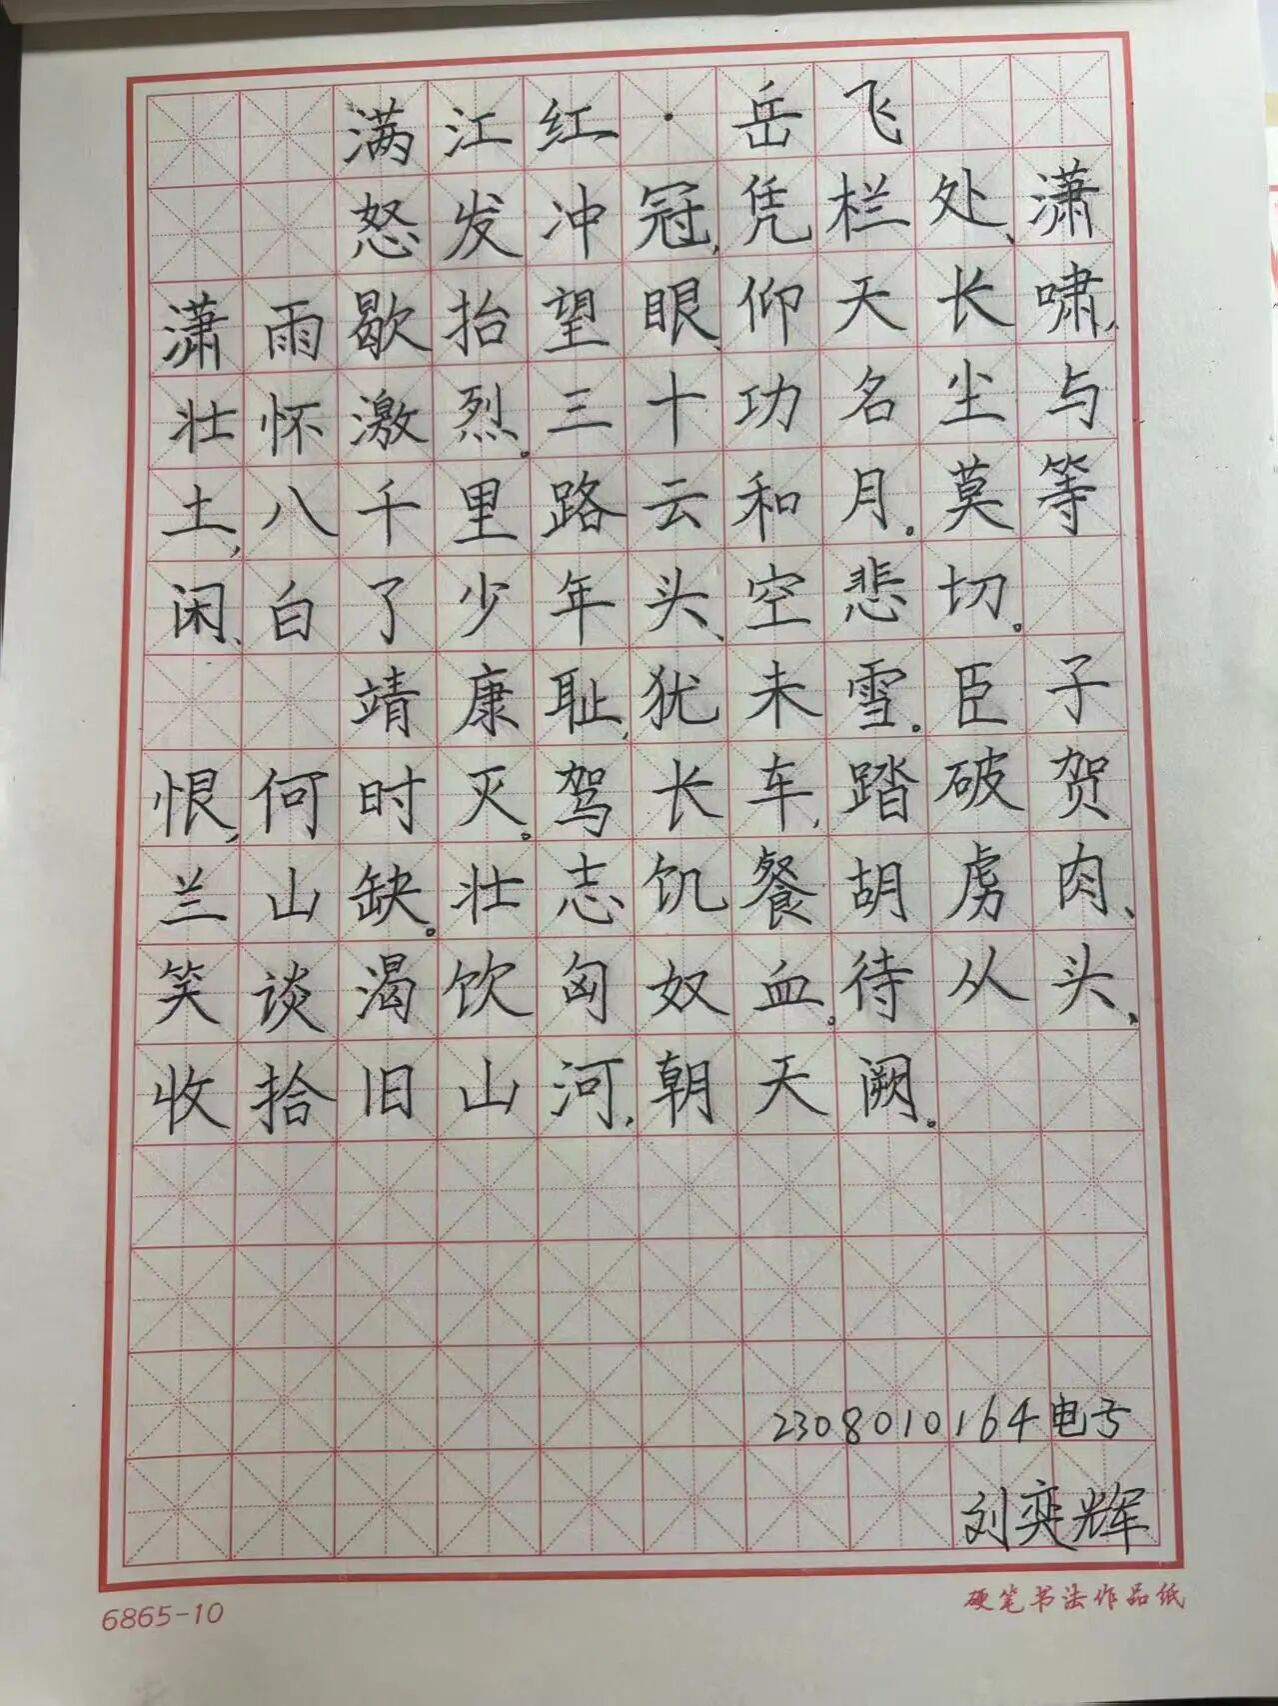 满江红·岳飞
怒发冲冠,凭栏处、潇
潇雨歇抬望眼、仰天长啸,
壮怀激烈。三十功名尘与
土,八千里路云和月。莫等
闲、白了少年头、空悲切。
靖康耻,犹未雪。臣子
恨,何时灭。驾长车,踏破贺
兰山缺。壮志饥餐胡虏肉、
笑谈渴饮匈奴血。待从头、
收拾旧山河,朝天阙。
2308010164电子
刘奕辉
6865-10
硬笔书法作品纸